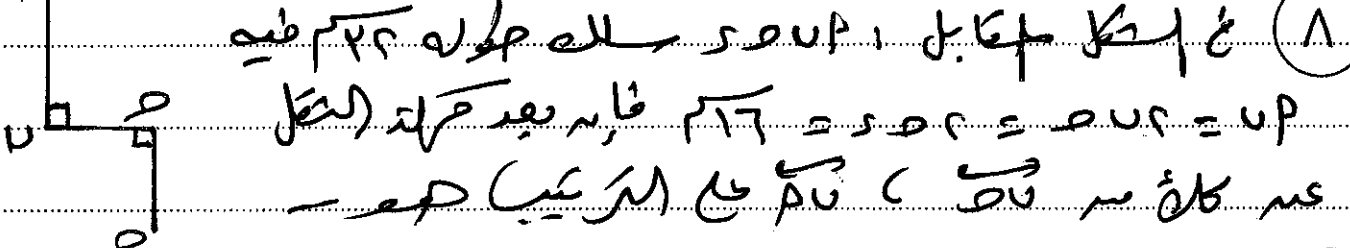 ٨ في الشكل المقابل ، ٢ ب ح د سلك طوله ٣٢ سم فيه
٢ ب = ٢ ب ح = ٢ ح د = ١٦ سم فإن بعد مركز الثقل
عن كلٍ من ب ح ، ب ٢ على الترتيب هو
ب
ح
د